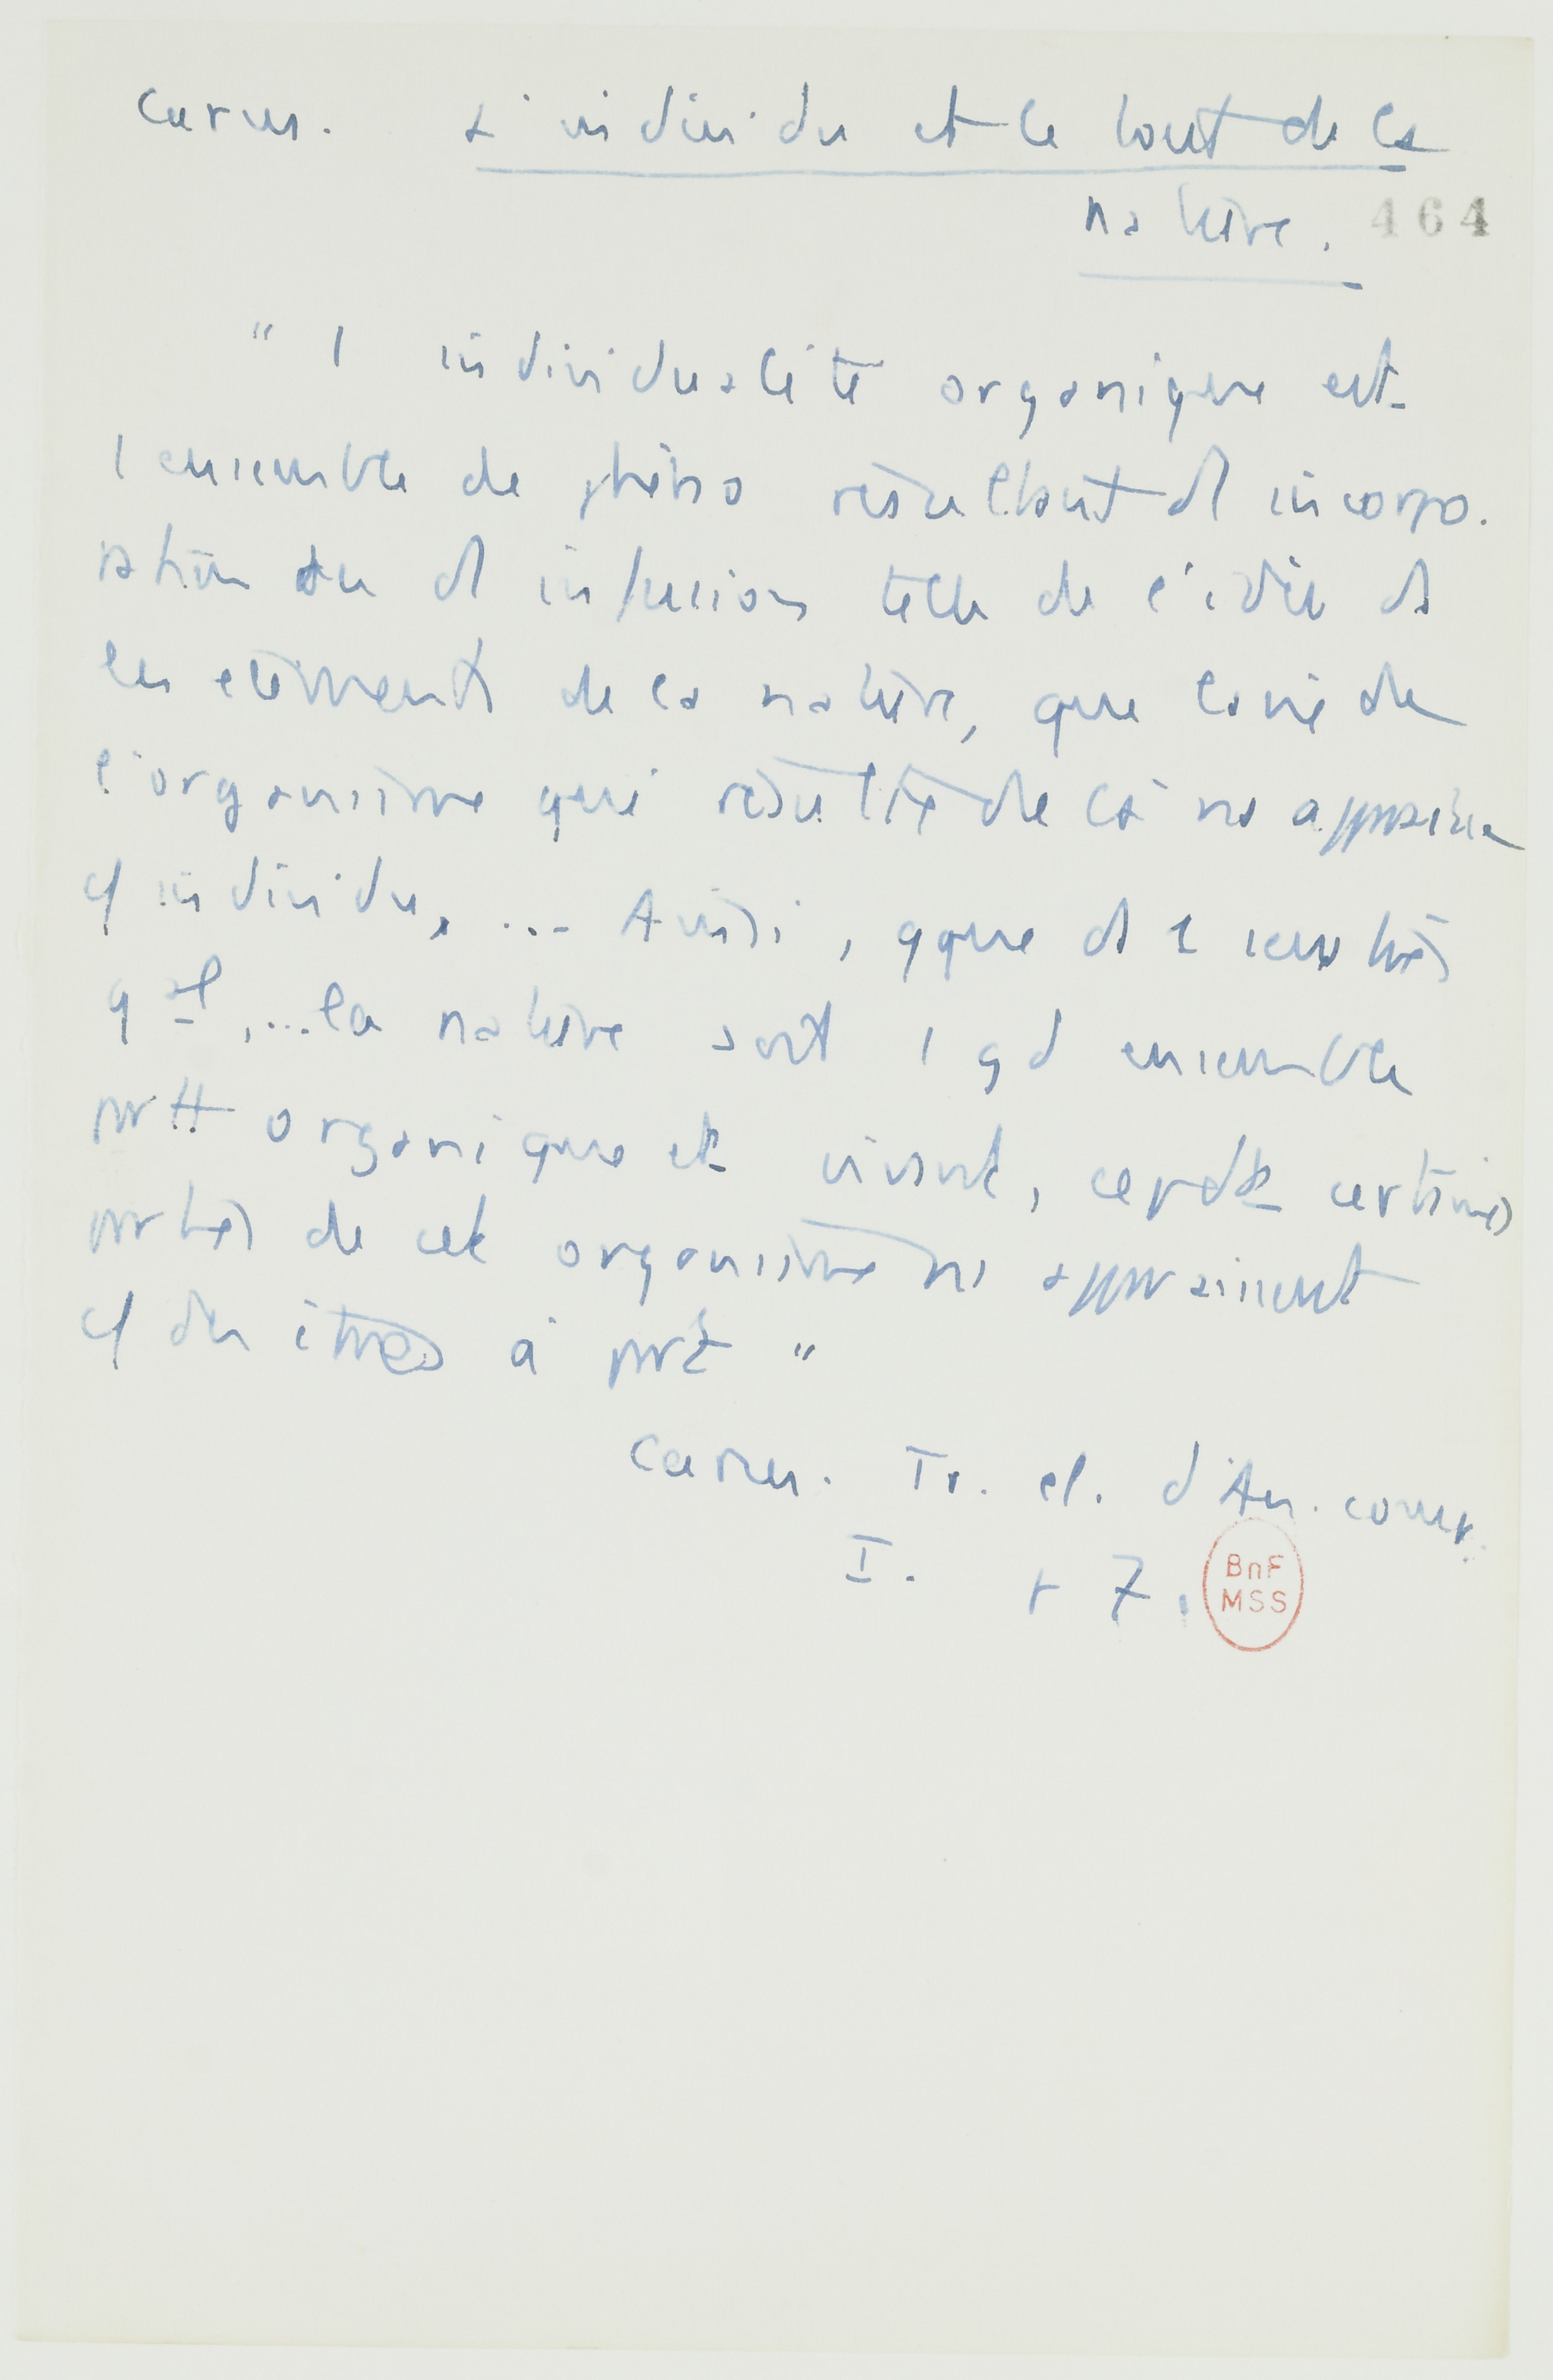 Carus. L'individu et le tout de la
nature. 464
" l individualité organique est
l ensemble de phéno résultant d incorpo.
ration ou d infusion telle de l'idée ds
les éléments de la nature, que la vie de
l'organisme qui résulte de là ns apparaisse
c/ individu, ... Ainsi, qque ds 1 sens très
gal, ... la nature soit 1 gd ensemble
prtt organique et vivant, cepdt certaines
parties de cet organisme ns apparaissent
c/ des êtres à part "
Carus. Tr. el. d'An. comp.
I. p 7.
BnF
MSS